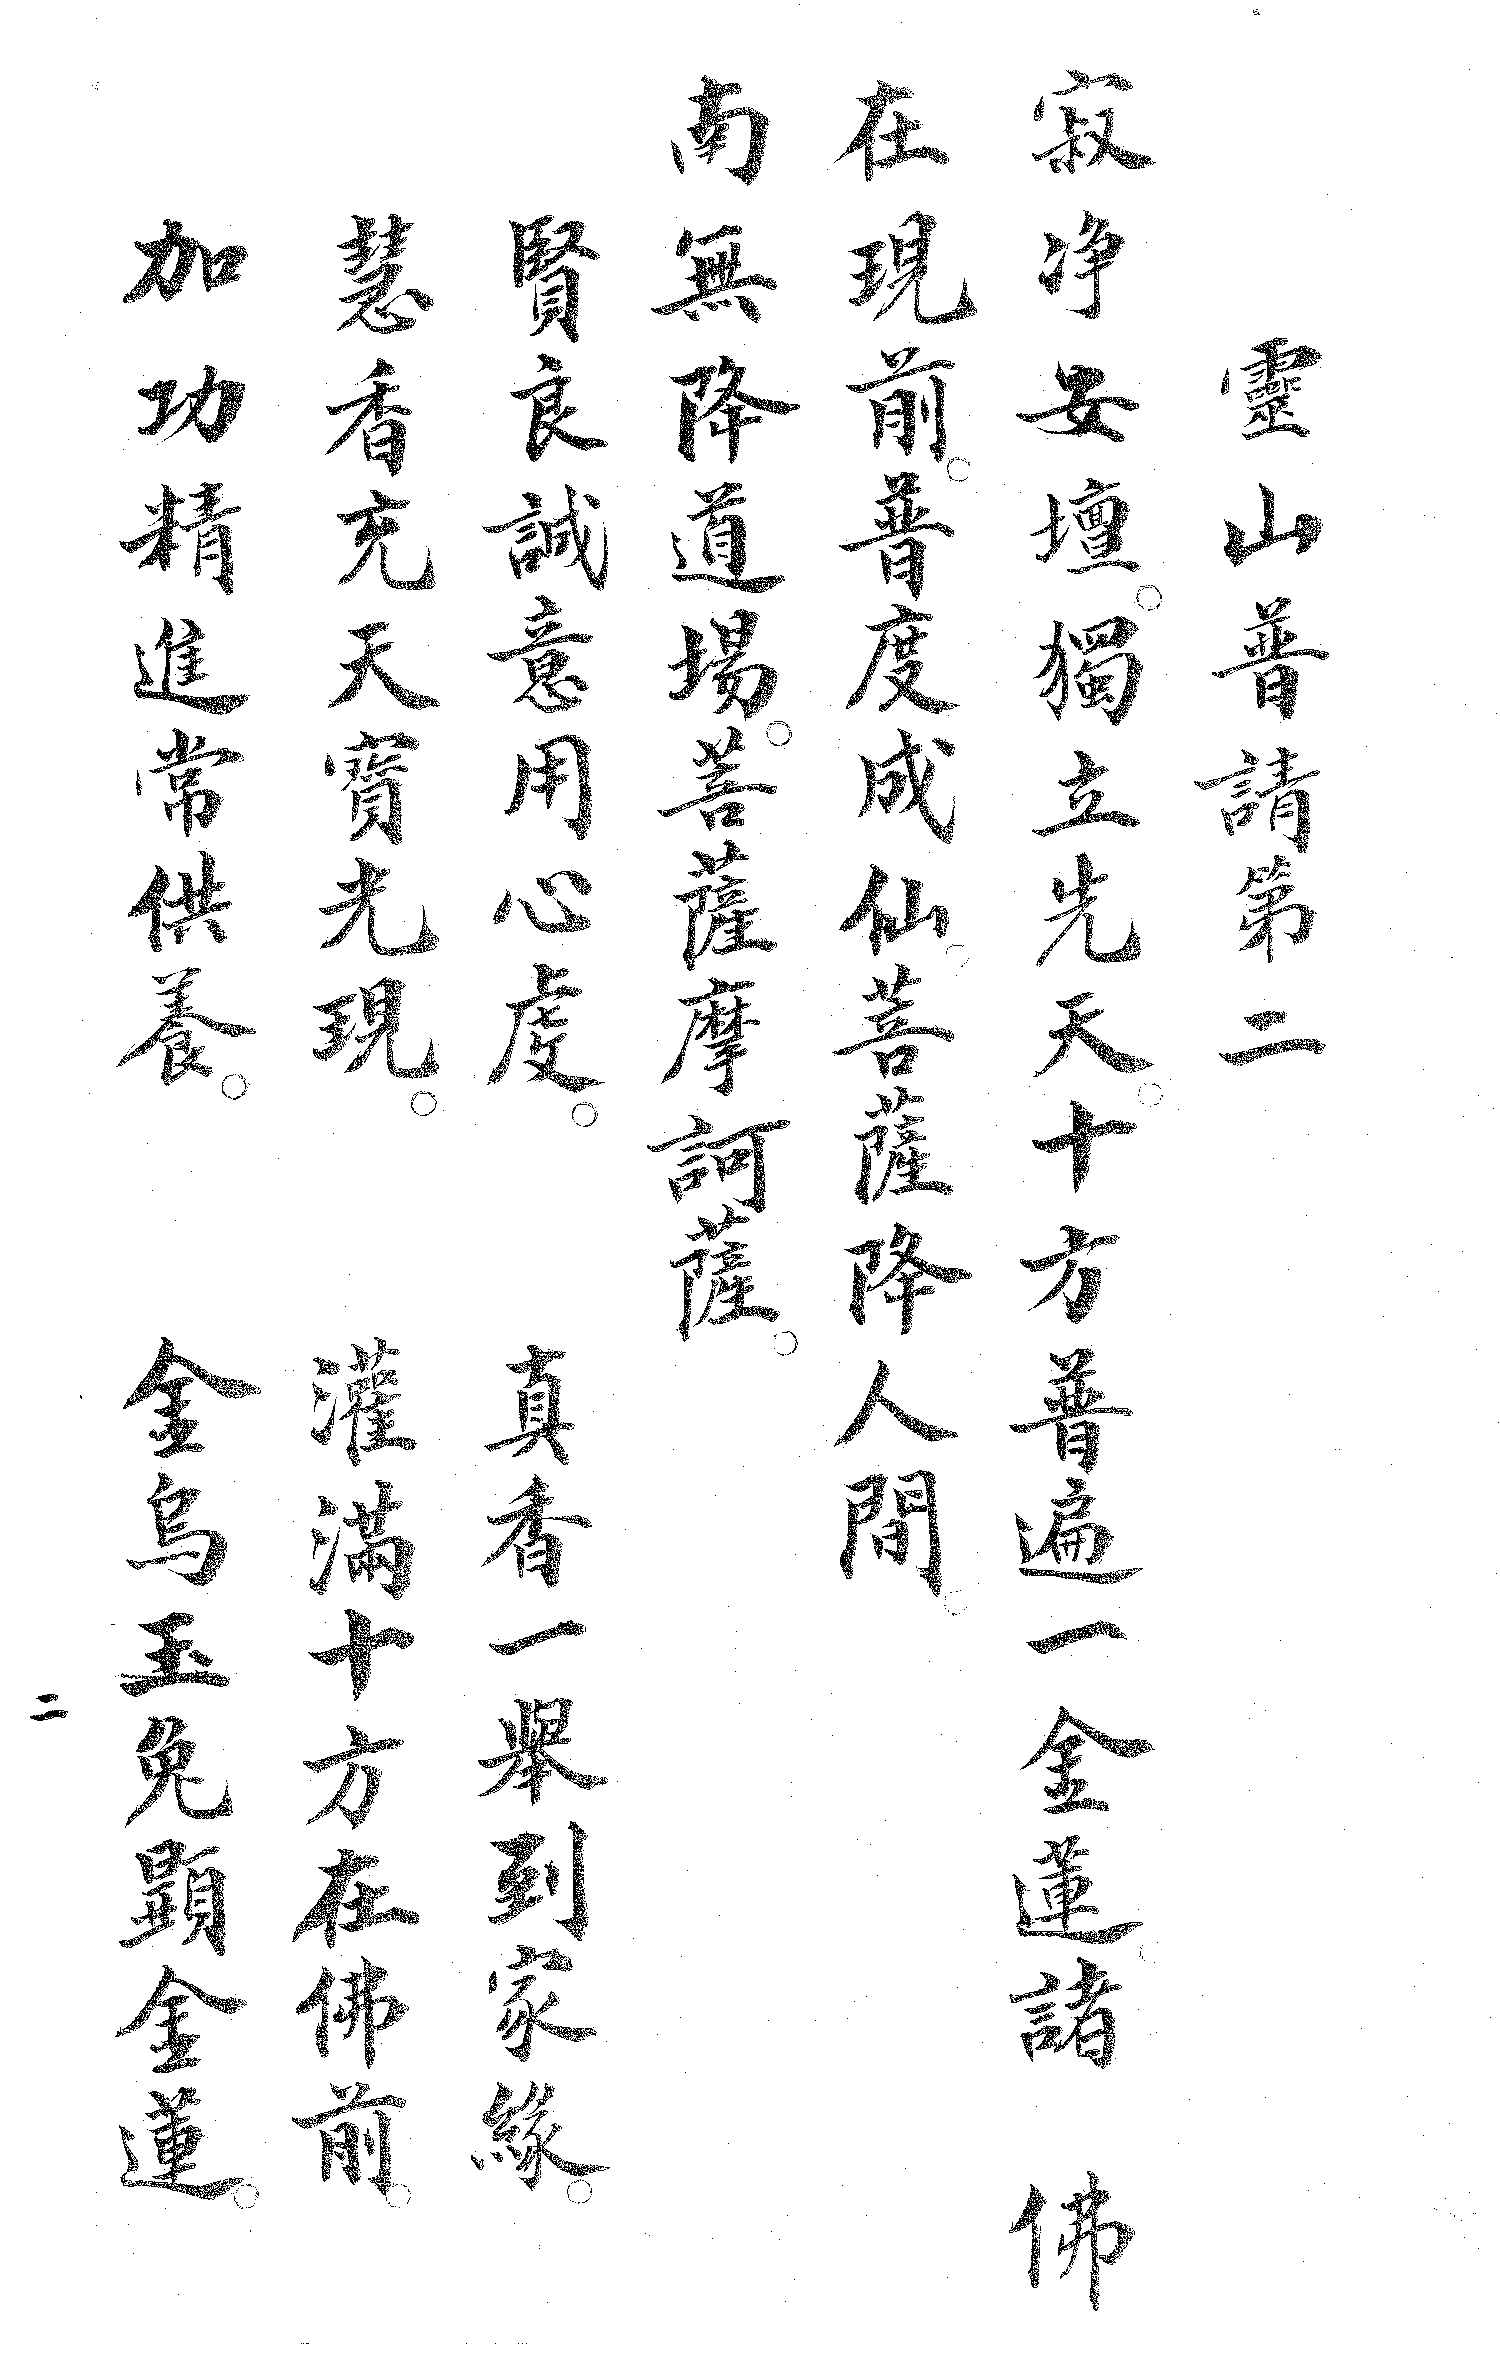 靈山普請第二
寂净安壇。獨立先天。十方普遍一金蓮。諸佛
在現前。普度成仙。菩薩降人間。
南無降道場。菩薩摩訶薩。
賢良誠意用心虔。真香一舉到家緣。
慧香充天寶光現。灌滿十方在佛前。
加功精進常供養。金烏玉兔顯金蓮。
二